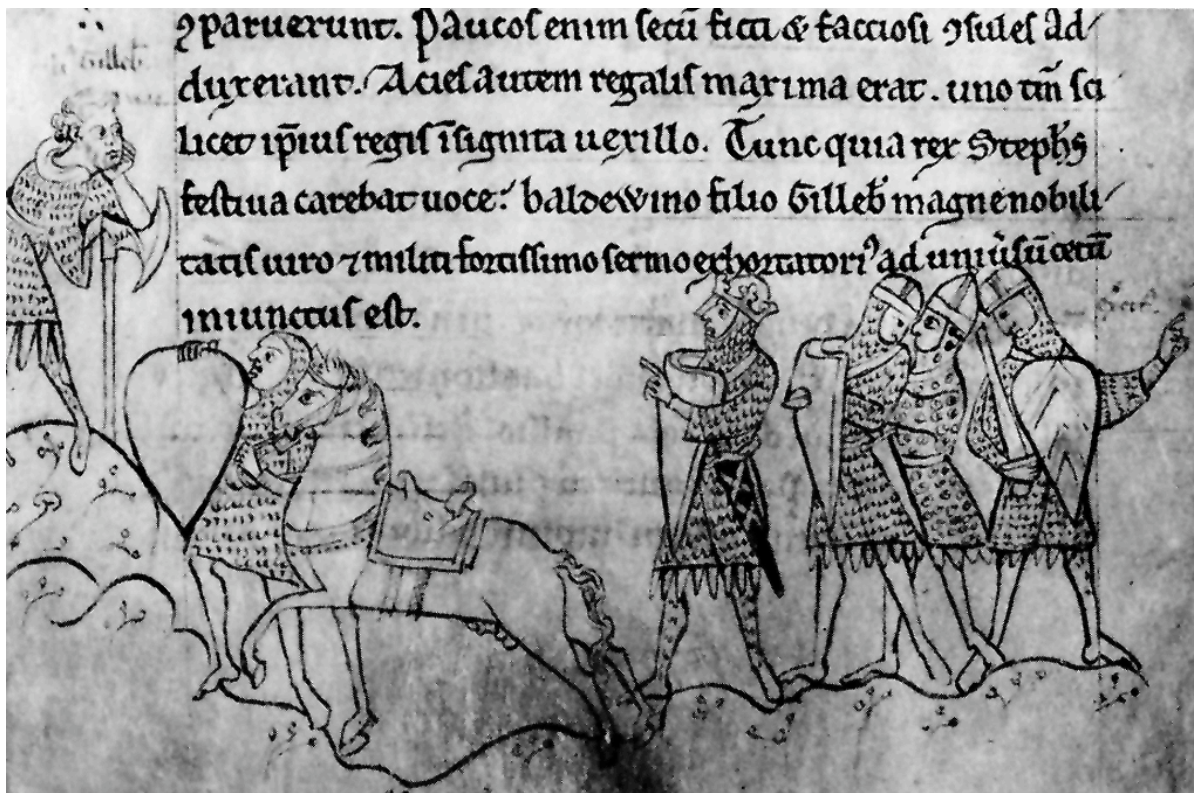 ꝯparuerunt. Paucos enim secū ficti & factiosi ꝯsules ad/
Gilleb̄
duxerant. Acies autem regalis maxima erat. uno tm̄ sci
licet ip̄ius regis īsignita uexillo. Tunc quia rex Steph̄s
festiua carebat uoce: baldewino filio Gilleb̄ magne nobili/
tatis uiro ⁊ militi fortissimo sermo exhortatoriꝰ ad uniu̾sū cetū
iniunctus est.